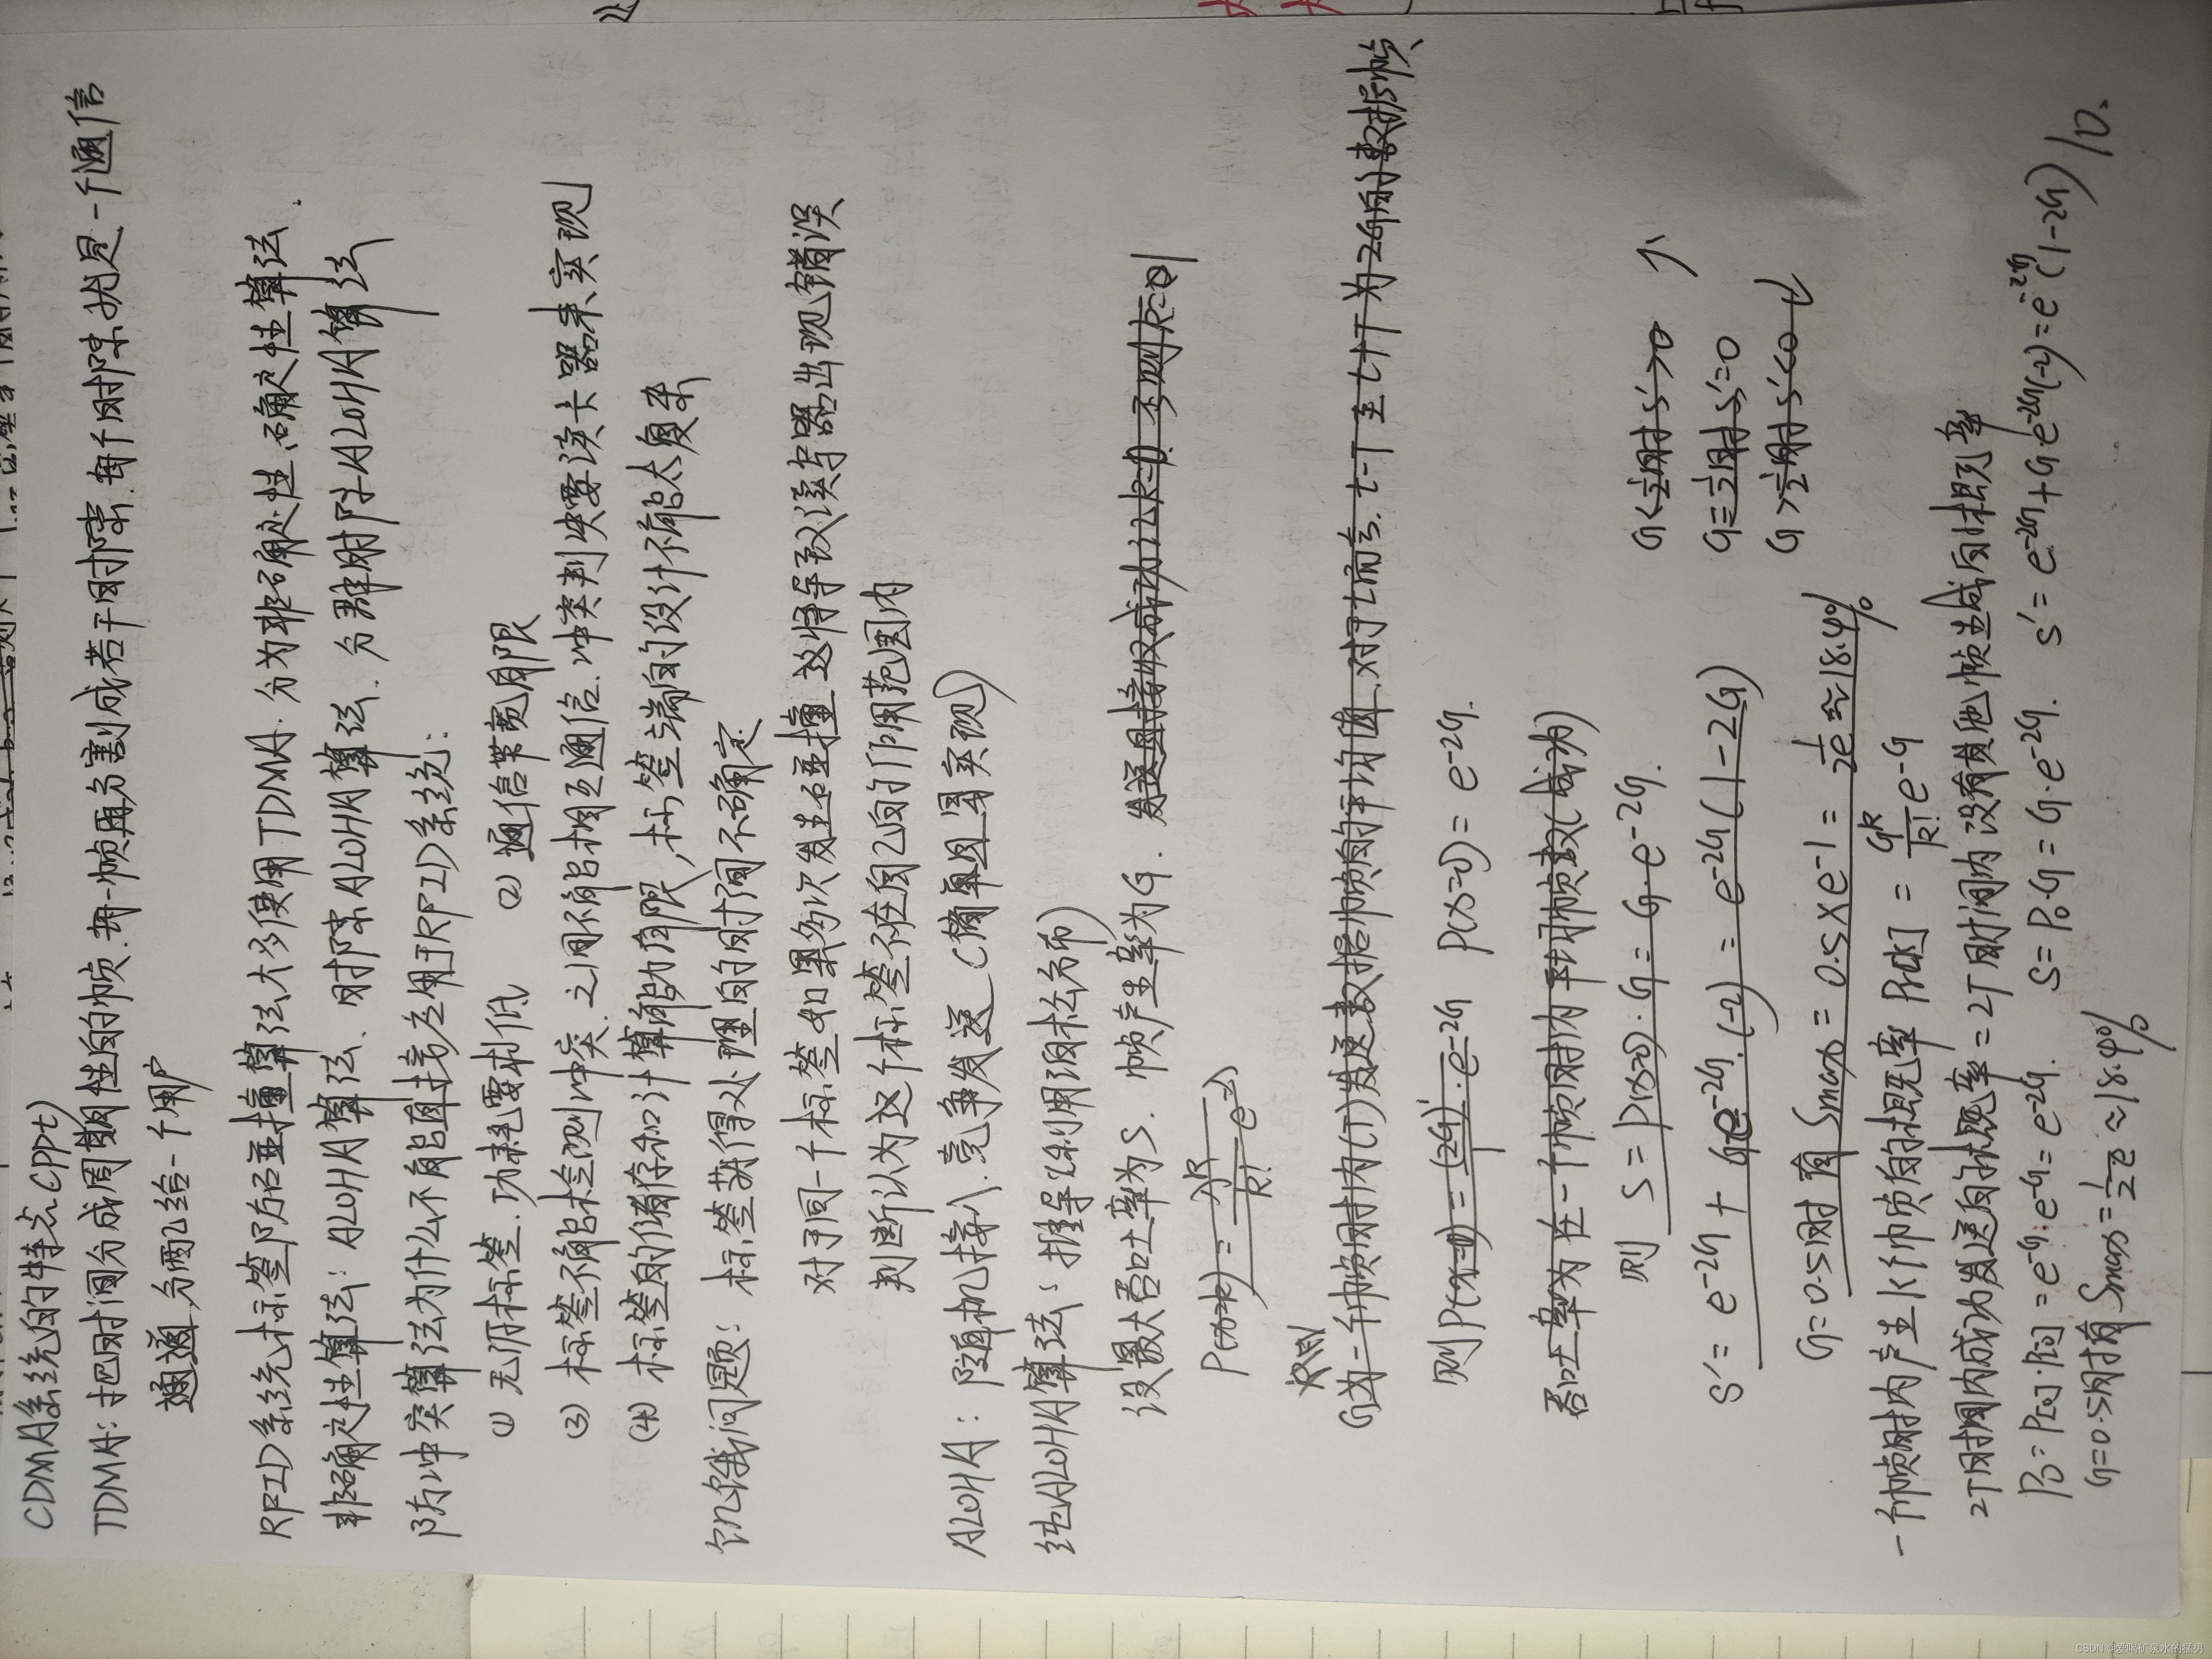 CDMA系统的特点(PPt)
TDMA:把时间分成周期性的帧.每一帧再分割成若干时隙.每个时隙就是一个通信
通道,分配给一个用户
RFID系统标签防碰撞算法大多使用TDMA.分为非确定性、确定性算法.
非确定性算法:ALOHA算法、时隙ALOHA算法.分群时隙ALOHA算法
防冲突算法为什么不能直接应用于RFID系统:
(1) 无源标签.功耗要求低 (2) 通信带宽有限
(3) 标签不能检测冲突.之间不能相互通信.冲突判决要读卡器来实现
(4) 标签的储存和计算能力有限,标签端的设计不能太复杂
标签获得处理的时间不确定
饥饿问题:对于同一个标签如果多次发生碰撞,这将导致读写器出现错误
判断认为这个标签不在自己的作用范围内
ALOHA:随机接入.竞争发送(简单且易实现)
纯ALOHA算法:推导(利用泊松分布)
设最大吞吐率为S.帧产生率为G.
P(x=k)=
G为一个帧时内(T)发送数据帧的平均值.对于t而言.t-T至t+T为2G的数据帧
则P(x=0)= · e-2G P(x=0)= e-2G.
吞吐率为在一个帧时内平均帧数(成功)
则 S=P(x=0)·G=G·e-2G.
S'=e-2G+Ge-2G·(-2)=e-2G(1-2G)
G<1/2时S'>0 ↑
G=1/2时S'=0
G>1/2时S'<0 ↓
G=0.5时有Smax=0.5×e-1=1/2e≈18.4%
一个帧时内产生k个帧的概率 Pr[k]=Gk/k! e-G
2T时间内成功发送的概率=2T时间内没有其他帧生成的概率
P0=P[0]·P[0]=e-G·e-G=e-2G. S=P0·G=G·e-2G. S'=e-2G+G·e-2G(-2)=e-2G(1-2G)
G=0.5时有Smax=1/2e≈18.4%
10.
CSDN @爱喝矿泉水的猛男